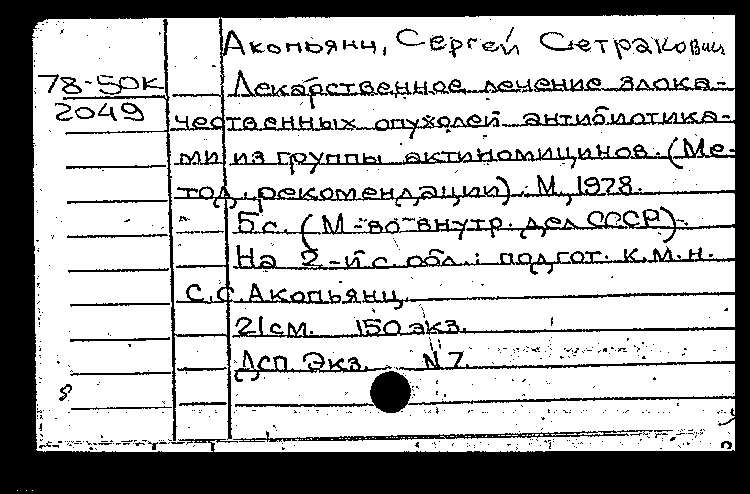 Акопьянц, Сергей Сетракович
78-50к
2049
Лекарственное лечение злока-
чественных опухолей антибиотика-
ми из группы актиномицинов. (Ме-
тод. рекомендации). М., 1978.
5 с. (М-во внутр. дел СССР).
На 2-й с. обл.: подгот. к.м.н.
С.С. Акопьянц
21см. 150 экз.
Дсп Экз. N 7.
8